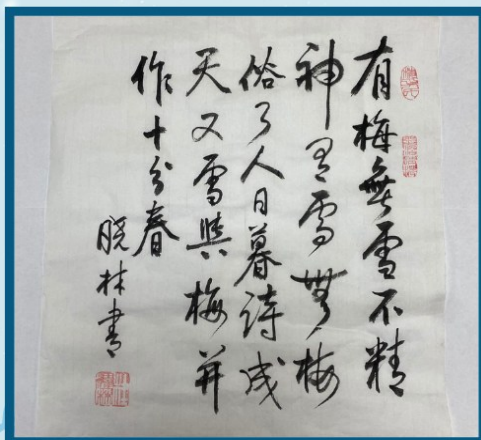 有梅無雪不精
神有雪無梅
俗了人日暮詩成
天又雪與梅并
作十分春
晓林書